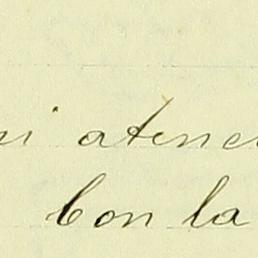 mi atenc
Con la